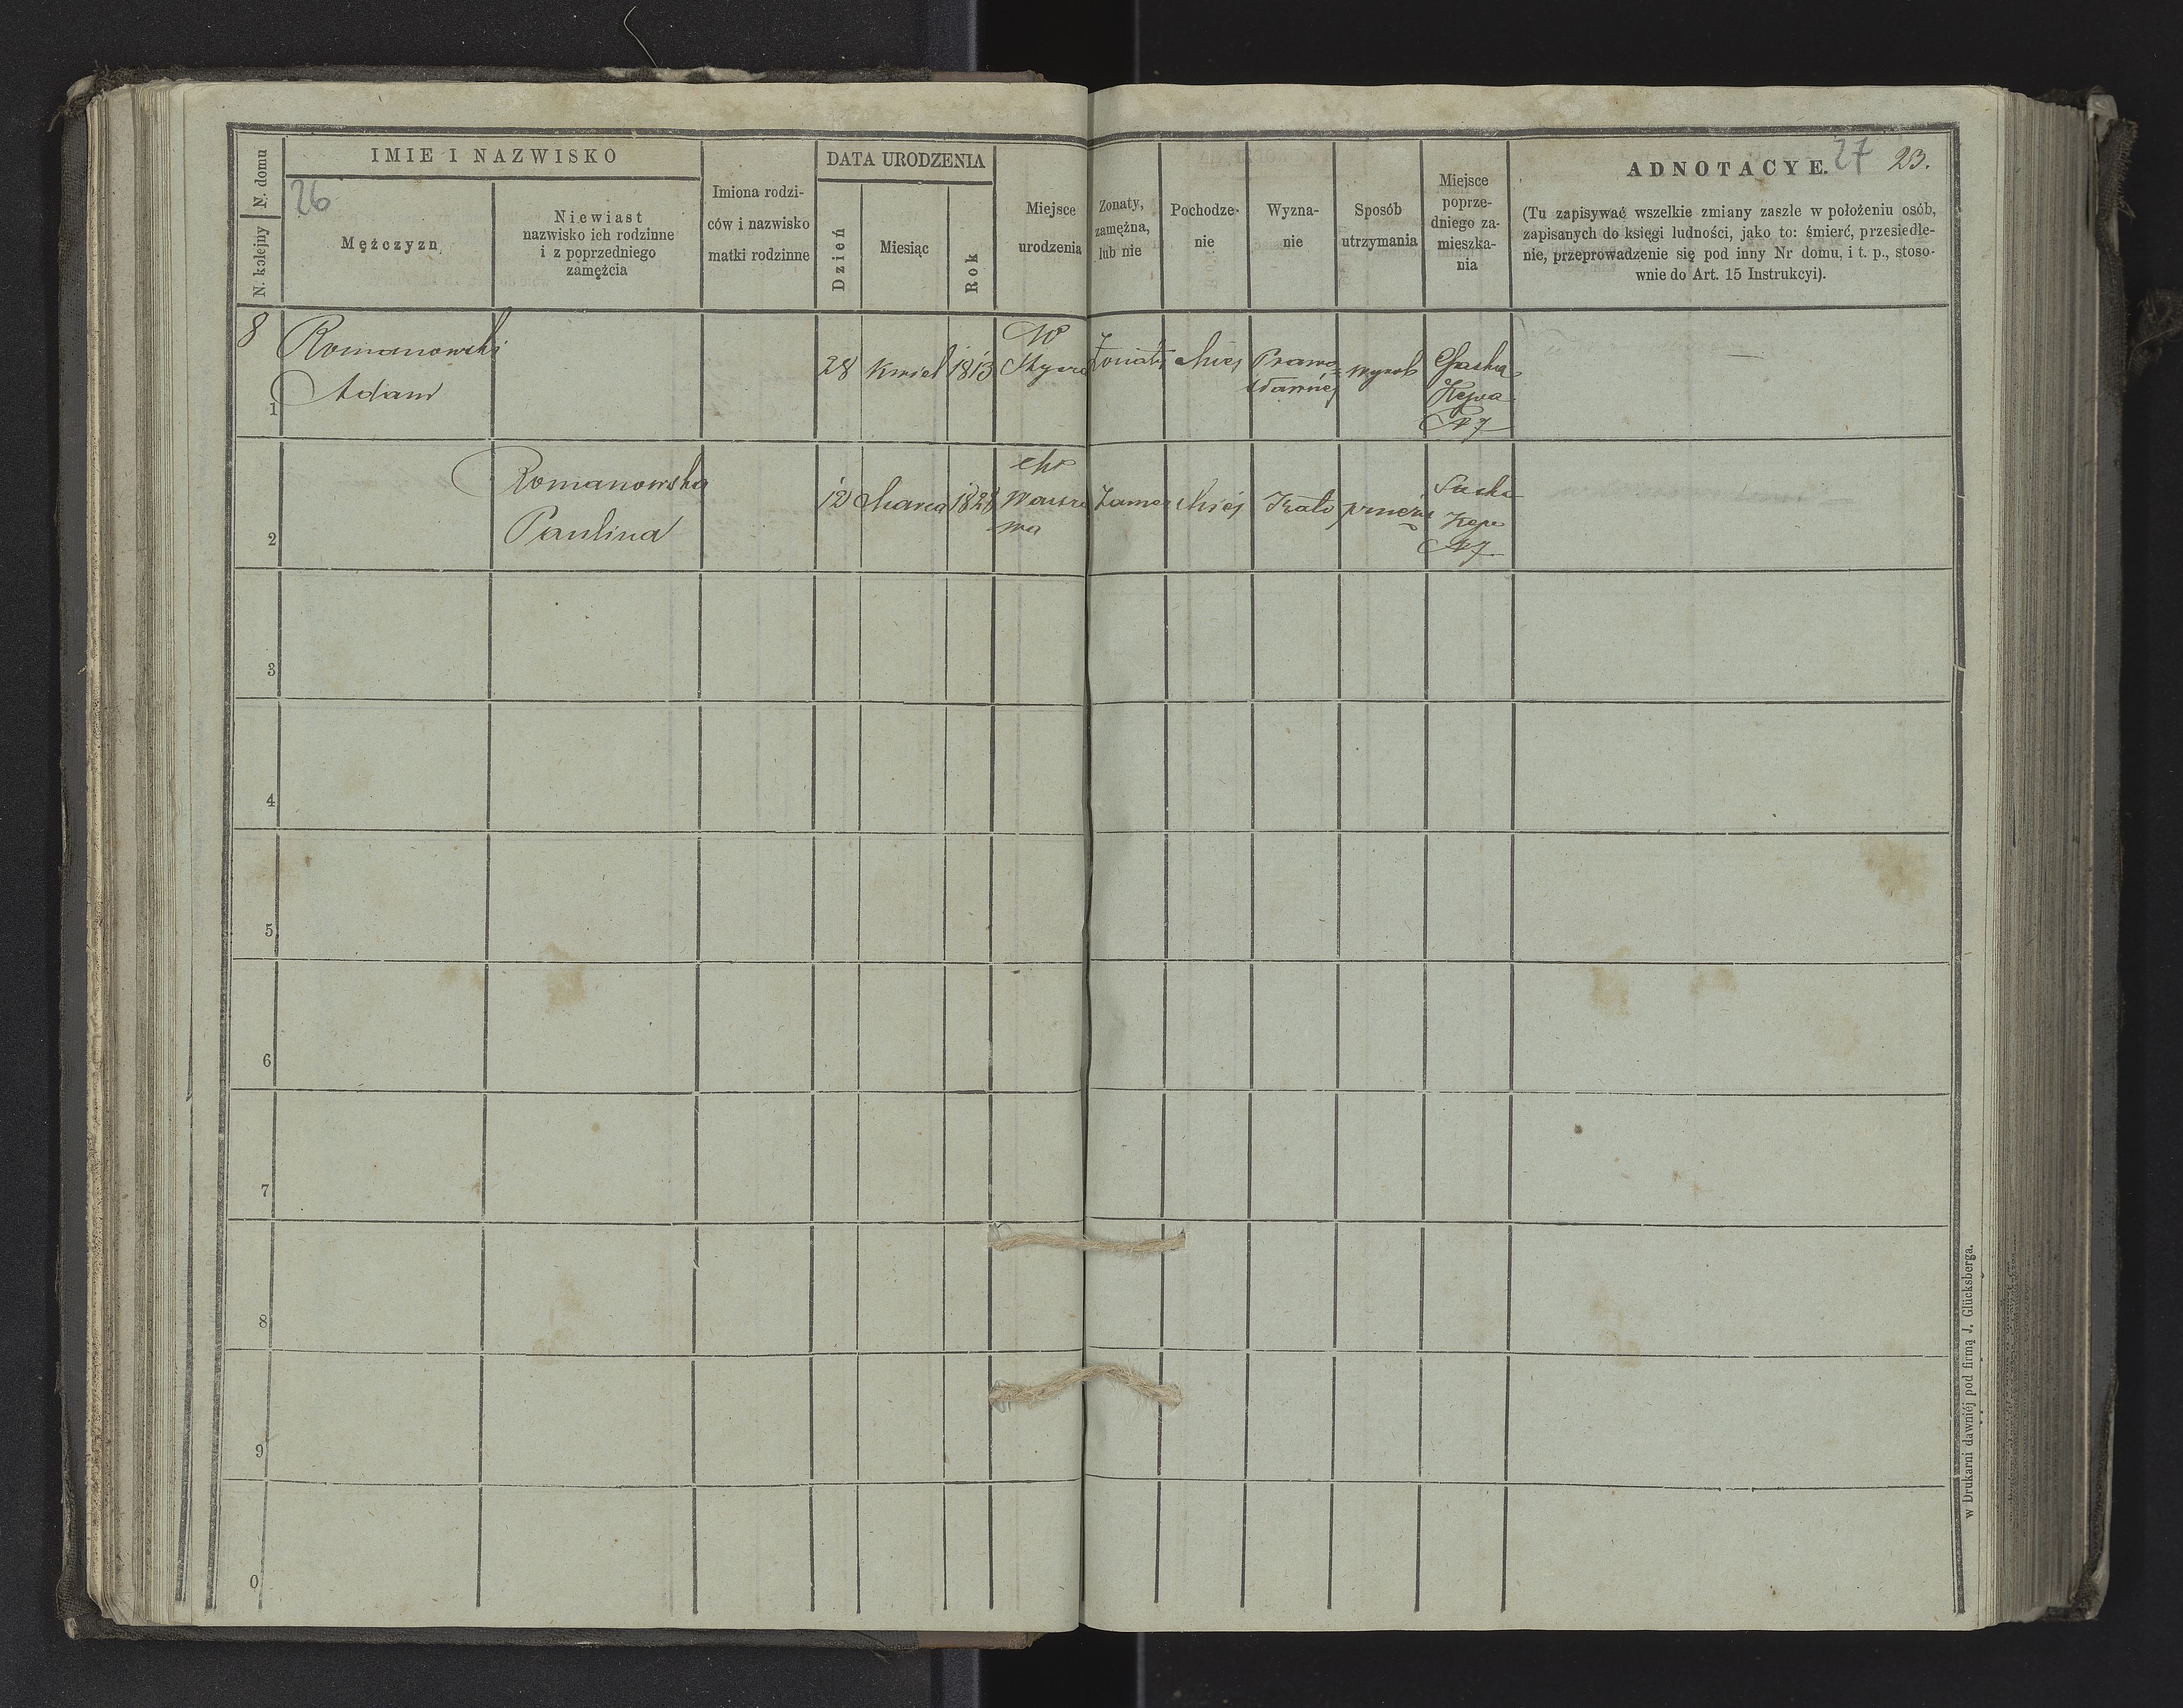 N. domu
N. kolejny
IMIE I NAZWISKO
26
Mężczyzn
Niewiast
nazwisko ich rodzinne
i z poprzedniego
zamężcia
Imiona rodzi-
ców i nazwisko
matki rodzinne
DATA URODZENIA
Dzień
Miesiąc
Rok
Miejsce
urodzenia
Zonaty,
zamężna,
lub nie
Pochodze-
nie
Wyzna-
nie
Sposób
utrzymania
Miejsce
poprze-
dniego za-
mieszka-
nia
ADNOTACYE.
27 23.
(Tu zapisywać wszelkie zmiany zaszłe w położeniu osób,
zapisanych do księgi ludności, jako to: śmierć, przesiedle-
nie, przeprowadzenie się pod inny Nr domu, i t. p., stoso-
wnie do Art. 15 Instrukcyi).
8
1
Romanowski
Adam
28
Kwiet
1813
Żonaty
Miej
Prawo=
sławnéj
wyrob
Saska
Kępa
N 7
2
Romanowska
Paulina
12
Marca
1828
Warsza
wa
Zamęz
Miéj
Kato
przy męzu
Saska
Kępa
N 7
3
4
5
6
7
8
9
0
w Drukarni dawniéj pod firmą J. Glücksberga.